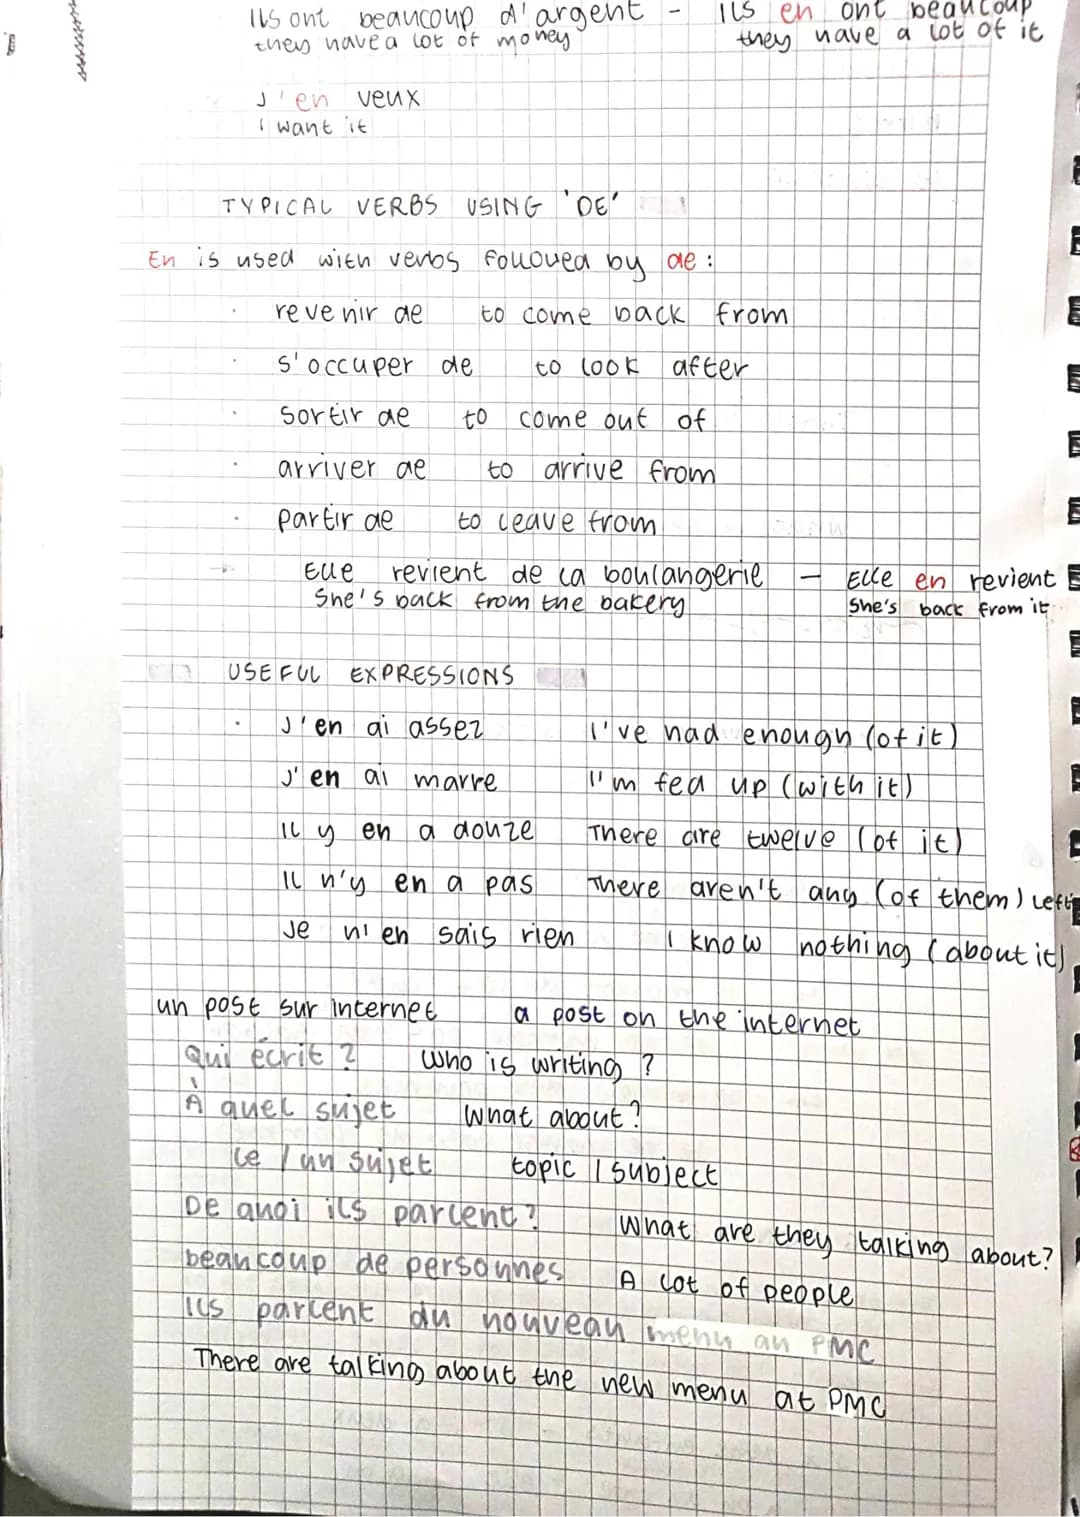 Ils ont beaucoup d'argent - Ils en ont beaucoup
they have a lot of money they have a lot of it
J'en veux
I want it
TYPICAL VERBS USING 'DE'
En is used with verbs followed by de :
· revenir de to come back from
· s'occuper de to look after
· sortir de to come out of
· arriver de to arrive from
· partir de to leave from
→ Elle revient de la boulangerie - Elle en revient
She's back from the bakery She's back from it
USEFUL EXPRESSIONS
· J'en ai assez I've had enough (of it)
J'en ai marre I'm fed up (with it)
Il y en a douze There are twelve (of it)
Il n'y en a pas There aren't any (of them) left
Je n'en sais rien I know nothing (about it)
un post sur internet a post on the internet
Qui écrit ? Who is writing ?
À quel sujet What about?
le / un sujet topic / subject
De quoi ils parlent? What are they talking about?
beaucoup de personnes A lot of people
Ils parlent du nouveau menu au PMC
There are talking about the new menu at PMC